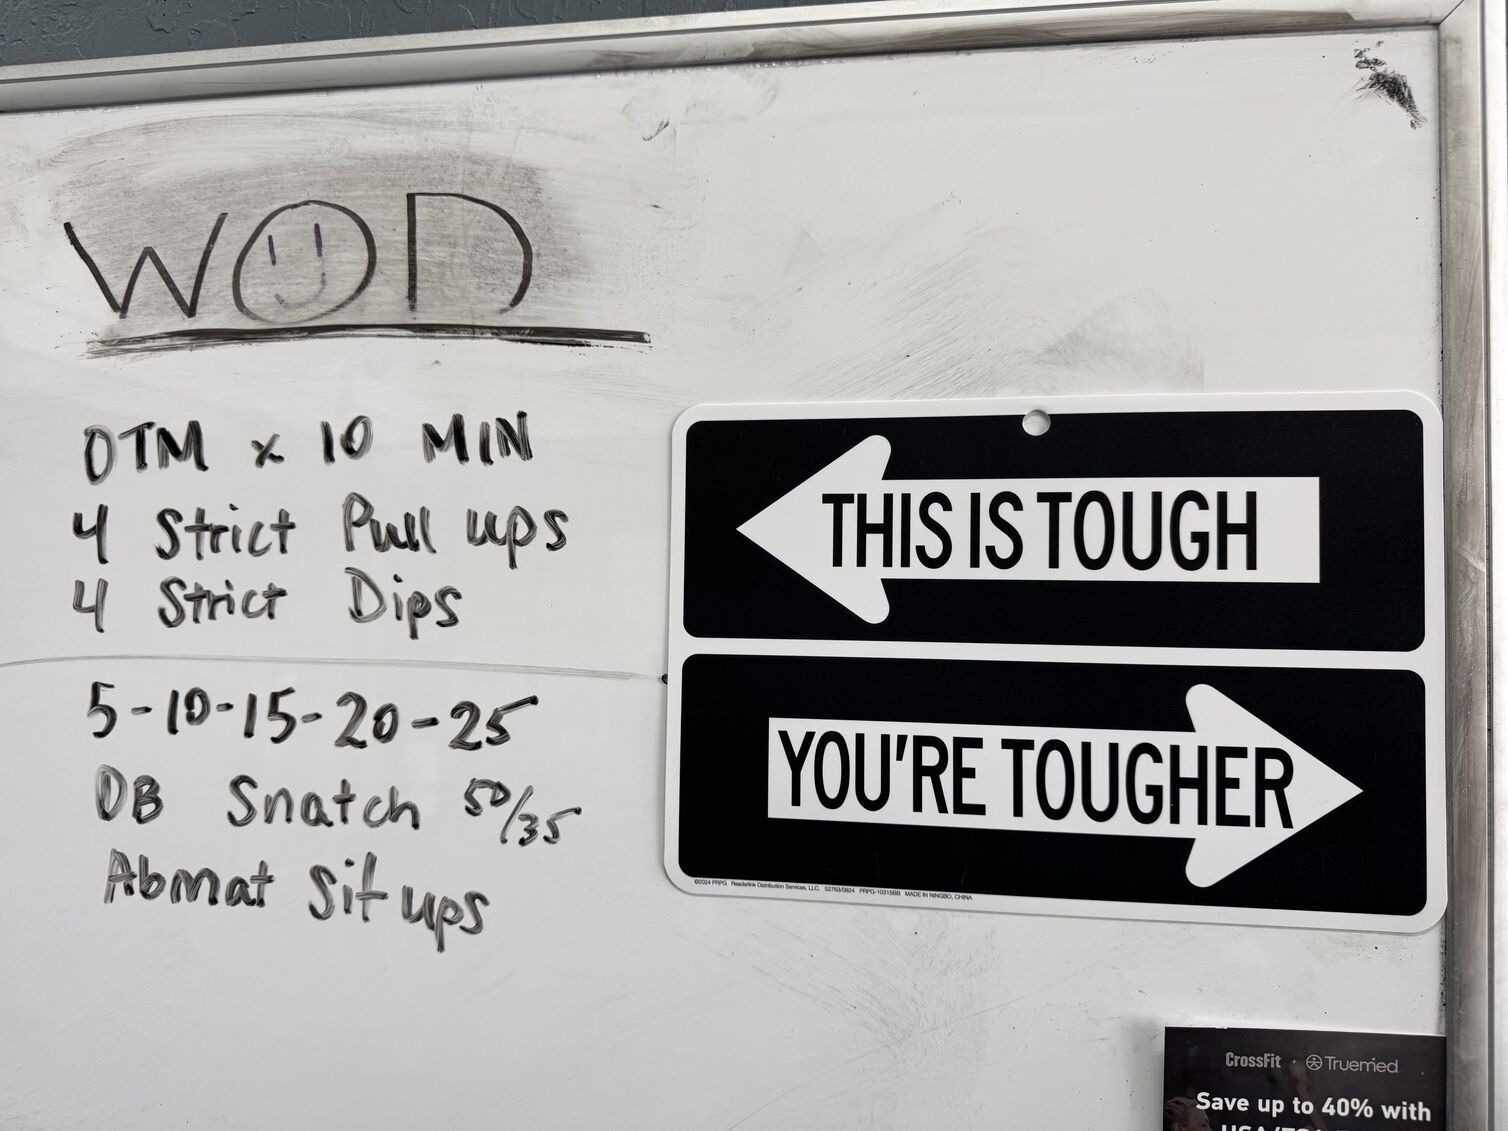 WOD
OTM x 10 MIN
4 Strict Pull ups
4 Strict Dips
5-10-15-20-25
DB Snatch 50/35
Abmat Sit ups
THIS IS TOUGH
YOU'RE TOUGHER
©2024 PRPG Readerlink Distribution Services, LLC. 52763/0824 PRPG-10315BB MADE IN NINGBO, CHINA
CrossFit + Truemed
Save up to 40% with